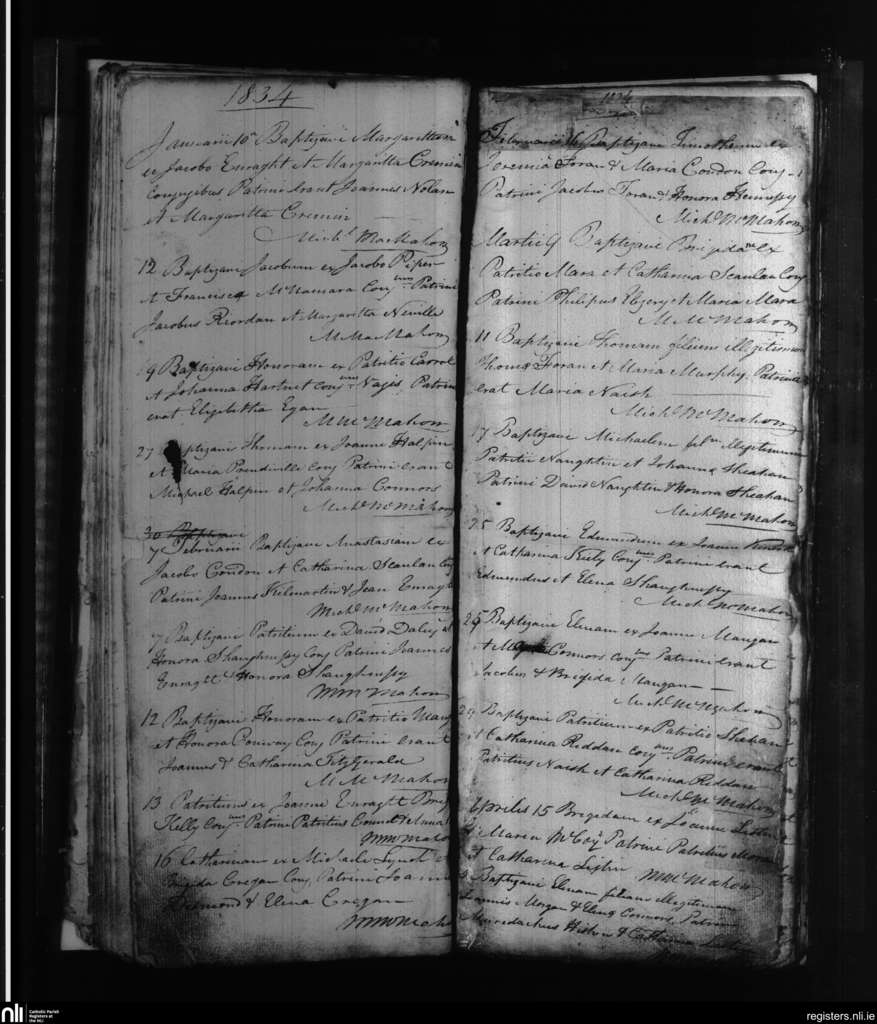 1834
Januarii 10 Baptizavi Margarettam
ex Jacobo Enraght et Margaretta Cremin
Conjugibus Patrini erant Joannes Nolan
et Margaretta Cremin
Michl MacMahon
12 Baptizavi Jacobum ex Jacobo Piper
et Francisca McNamara Conj Patrini
Jacobus Riordan et Margaretta Neville
M MacMahon
19 Baptizavi Honoram ex Patritio Carrol
et Johanna Hartnet conj Vagis, Patrini
erat Elizabetha Egan
M McMahon
27 Baptizavi Thomam ex Joanne Halpin
et Maria Prendiville Conj Patrini erant
Michael Halpin et Johanna Connors
Michl McMahon
30 Baptizavi
7 Februarii Baptizavi Anastasiam ex
Jacobo Condon et Catharina Scanlan Conj
Patrini Joannes Kelmartin & Jean Enraght
Michl McMahon
7 Baptizavi Patritium ex David Daly et
Honora Shaughnessy Conj Patrini Joannes
Enraght & Honora Shaughnessy
M McMahon
12 Baptizavi Honoram ex Patritio
et Honora Conway Conj Patrini erant
Joannes & Catharina Fitzgerald
M McMahon
13 Patritium ex Joanne Enraght
Kelly Conj Patrini Patritius
M McMahon
16 Catharinam ex Michaele Lynch
Brigida Cregan Conj Patrini
Desmond & Elena Cregan
M McMahon
1834
Februarii 16 Baptizavi Timotheum ex
Jeremia Foran & Maria Condon Conj
Patrini Jacobus Foran & Honora Hennessy
Michl McMahon
Martii 9 Baptizavi Brigidam ex
Patritio Mara et Catharina Scanlan Conj
Patrini Philipus et Maria Mara
M McMahon
11 Baptizavi Thomam filium illegitimum
Thoma Foran et Maria Murphy, Patrini
erat Maria Naish
Michl McMahon
17 Baptizavi Michaelem film illegitimum
Patritii Naughtin et Johanna Sheehan
Patrini David Naughtin & Honora Sheehan
Michl McMahon
25 Baptizavi Edmundum ex Joanne
et Catharina Kiely Conj Patrini erant
Edmundus et Elena Shaughnessy
Michl McMahon
25 Baptizavi Elenam ex Joanne Mangan
et Connors conj Patrini erant
Jacobus & Brigida Mangan
Michl McMahon
29 Baptizavi Patritium ex Patritio Sheehan
et Catharina Riddan Conj Patrini erant
Patritius Naish et Catharina Riddan
Michl McMahon
Aprilis 15 Brigidam ex Joanne
& Maria McCoy Patrini Patritius
et Catharina M McMahon
Baptizavi Elenam filiam illegitimam
Joannis & Elena Connors, Patrini
& Catharina
nli
Catholic Parish
Registers at
the NLI
registers.nli.ie